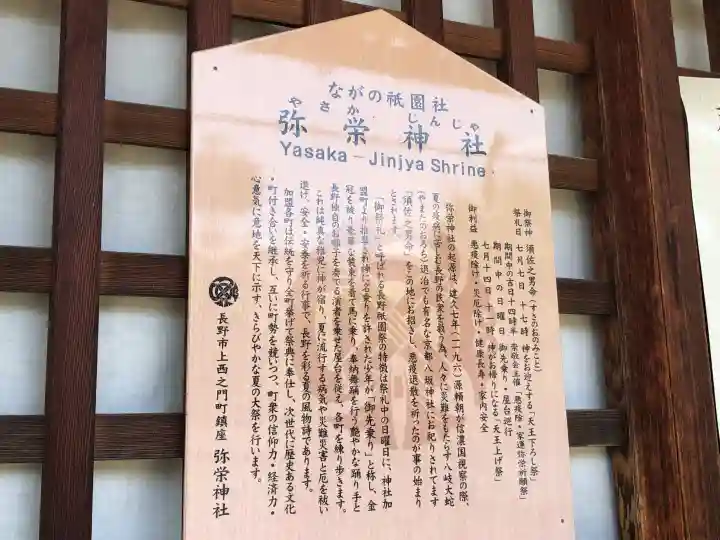 ながの祇園社
やさか じんじゃ
弥栄神社
Yasaka－Jinjya Shrine
御祭神 須佐之男命(すさのおのみこと)
祭礼日 七月七日 十七時 神をお迎えする「天王下ろし祭」
期間中の吉日 十四時半 崇敬会主催「悪疫除 家運弥栄祈願祭」
期間中の日曜日 御先乗り・屋台巡行
七月十四日 十一時 神がお帰りになる「天王上げ祭」
御利益 悪疫除け・災厄除け・健康長寿・家内安全
弥栄神社の起源は、建久七年(一一九六)源頼朝が信濃国視察の際、
夏の疫病に苦しむ長野の民衆を救う為、人々に災難をもたらす八岐大蛇
(やまたのおろち)退治でも有名な京都八坂神社にお祀りされてます
「須佐之男命」をこの地にお招きし、悪疫退散を祈ったのが事の始まり
とされます。
「御祭礼」と呼ばれる長野祇園祭の特徴は祭礼中の日曜日に、神社加
盟町より推挙され神に名乗りを許された少年が「御先乗り」と称し、金
冠を被り豪華な装束を着て馬に乗り、奉納舞踊を行う艶やかな踊り手と
長野独自のお囃子を奏でる演者を乗せた屋台を従え、各町を練り歩きます。
これは純真な稚児に神が宿り、夏に流行する病気や災難災害と厄を祓い
退け、安全・安泰を祈る行事で、長野を彩る夏の風物詩であります。
加盟各町は伝統を守り全町挙げて祭典に奉仕し、次世代に歴史ある文化
・町付き合いを継承し、互いに町勢を競いつつ、町衆の信仰力・経済力・
心意気に意地を天下に示す、きらびやかな夏の大祭を行います。
長野市上西之門町鎮座 弥栄神社